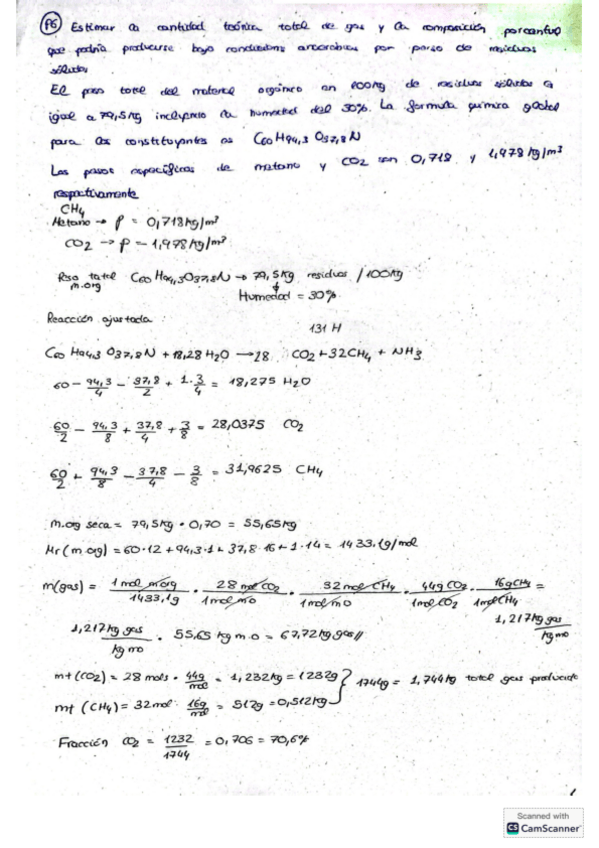 P6 Estimar la cantidad teórica total de gas y la composición porcentual
que podría producirse bajo condiciones anaerobias por parte de residuos
sólidos
El peso total del material orgánico en 100kg de residuos sólidos es
igual a 79,5kg incluyendo la humedad del 30%. La formula química global
para los constituyentes es C60 H94,3 O37,8 N
Los pesos específicos de metano y CO2 son 0,718 y 1,978 kg/m³
respectivamente
CH4
Metano → ρ = 0,718kg/m³
CO2 → ρ = 1,978kg/m³
Peso total C60 H94,3 O37,8 N → 79,5kg residuos /100kg
m.org
Humedad = 30%
Reacción ajustada:
131 H
C60 H94,3 O37,8 N + 18,28 H2O → 28 CO2 + 32CH4 + NH3
60 - 94,3/4 - 37,8/2 + 1·3/4 = 18,275 H2O
60/2 - 94,3/8 + 37,8/4 + 3/8 = 28,0375 CO2
60/2 + 94,3/8 - 37,8/4 - 3/8 = 31,9625 CH4
m.org seca = 79,5kg · 0,70 = 55,65kg
Mr (m.org) = 60·12 + 94,3·1 + 37,8·16 + 1·14 = 1433,1g/mol
m(gas) = 1 mol m.org/1433,1g · 28 mol CO2/1mol mo · 32 mol CH4/1mol mo · 44g CO2/1mol CO2 · 16g CH4/1mol CH4 =
1,217 kg gas/kg mo
1,217 kg gas/kg mo · 55,65 kg m.o = 67,72 kg gas//
mt (CO2) = 28 mols · 44g/mol = 1,232kg = 1232g
mt (CH4) = 32mol · 16g/mol = 512g = 0,512kg
} 1744g = 1,744kg total gas producido
Fracción CO2 = 1232/1744 = 0,706 = 70,6%
Scanned with
CS CamScanner